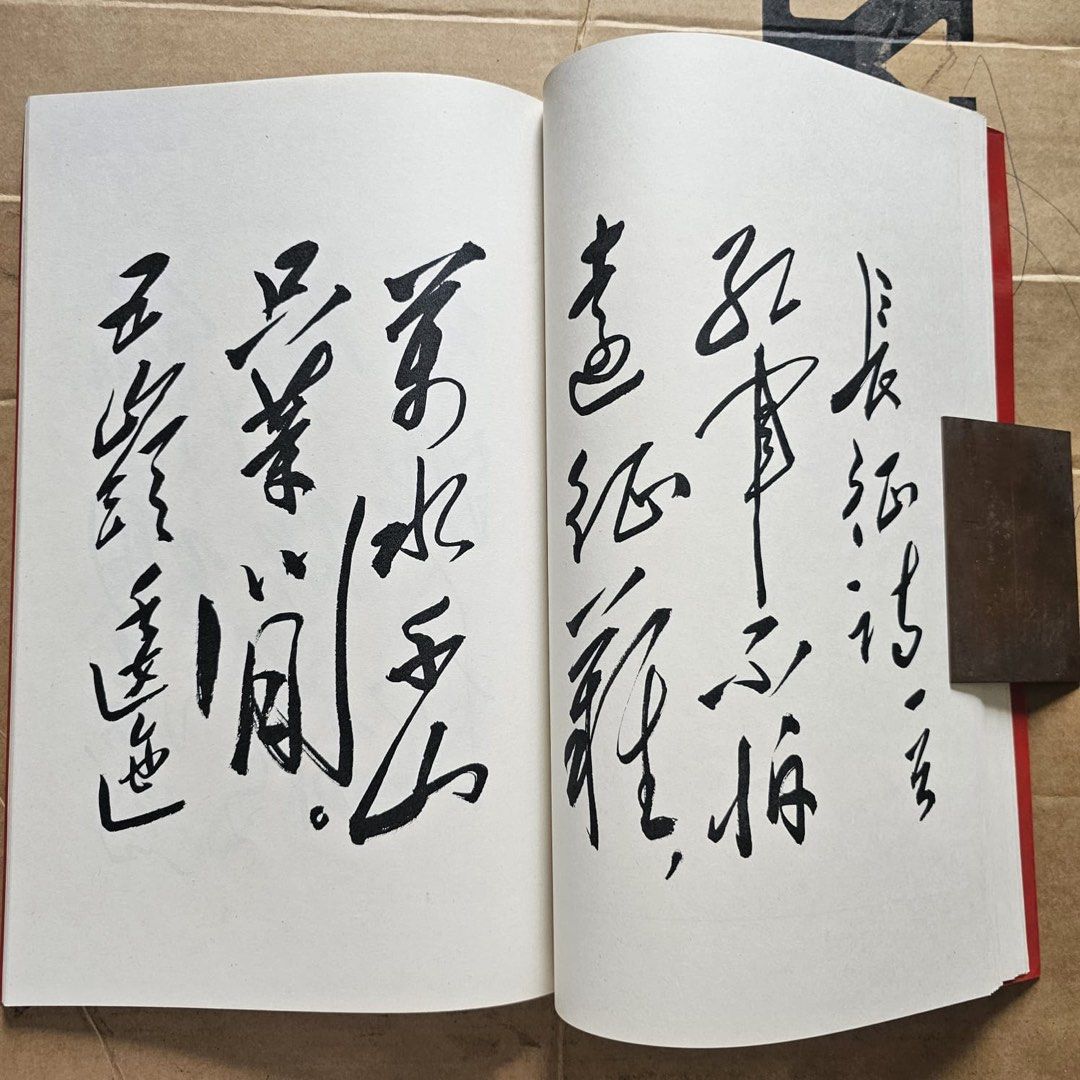 長征詩一首
紅軍不怕
遠征難，
萬水千山
只等閒。
五嶺逶迤